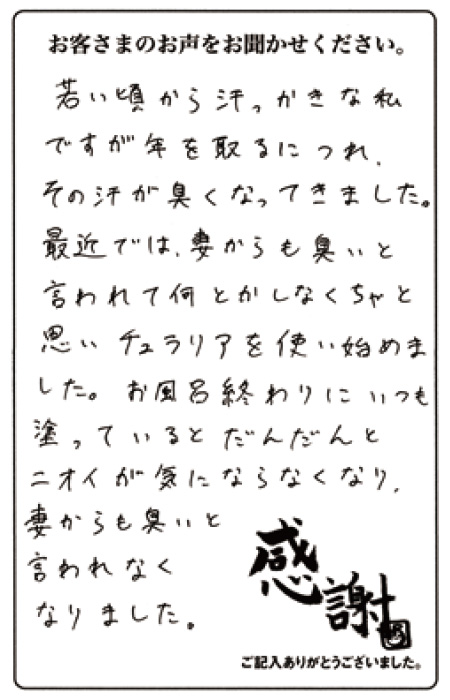 お客さまのお声をお聞かせください。
若い頃から汗っかきな私
ですが年を取るにつれ、
その汗が臭くなってきました。
最近では、妻からも臭いと
言われて何とかしなくちゃと
思いチュラリアを使い始めま
した。お風呂終わりにいつも
塗っているとだんだんと
ニオイが気にならなくなり、
妻からも臭いと
言われなく
なりました。
感謝
ご記入ありがとうございました。